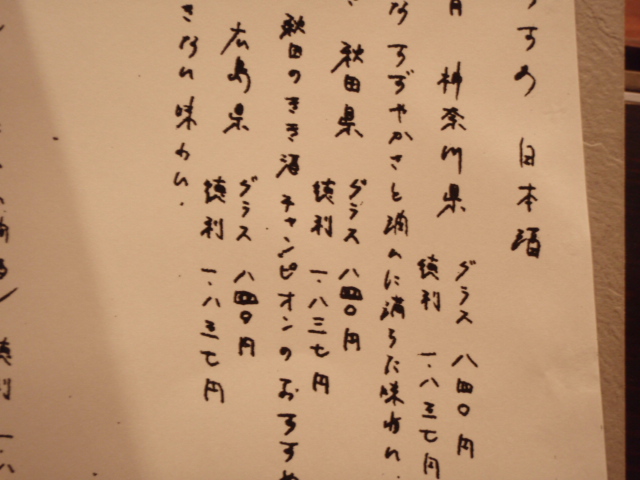 すめ 日本酒
月 神奈川県
グラス 八四〇円
徳利 一.八三七円
な すずやかさと潤いに満ちた味わい.
秋田県
グラス 八四〇円
徳利 一.八三七円
秋田のきき酒チャンピオンのおすすめ
広島県
グラス 八四〇円
徳利 一.八三七円
きない味わい.
徳利 一.八